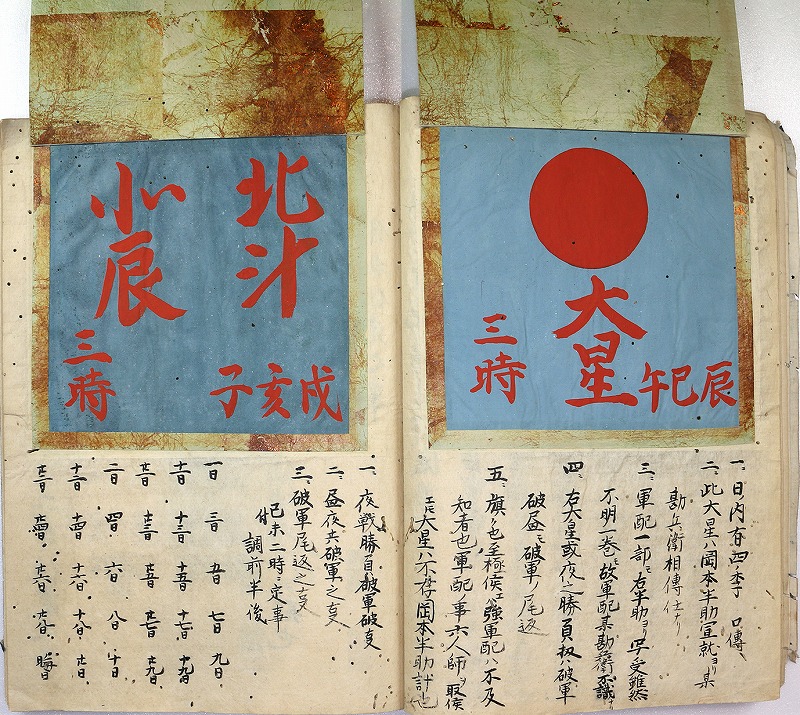 大星
辰巳午
三時
一、日ノ内春四季 口傳
二、此大星ハ岡本半助宣就ヨリ某
勘兵衛相傳仕ナリ
三、軍配一部ニ右半助ヨリ写受雖然
不明一巻ニ故軍配某勘兵衛不識
四、右大星或夜之勝負扨ハ破軍
破昼ニ破軍ノ尾返
五、旗ノ也至極侯ニ強軍配ハ不及
知者也軍配ノ事六人師ヲ取侯
大星ハ不存岡本半助計也
北斗
小辰
戌亥子
三時
一、夜戦勝負破軍破支
二、昼夜共破軍之支
三、破軍尾返之支
巳未二時ニ定事
付調前半後
一日 三日 五日 七日 九日
十一日 十三日 十五日 十七日 十九日
廿一日 廿三日 廿五日 廿七日 廿九日
二日 四日 六日 八日 十日
十二日 十四日 十六日 十八日 廿日
廿二日 廿四日 廿六日 廿八日 晦日